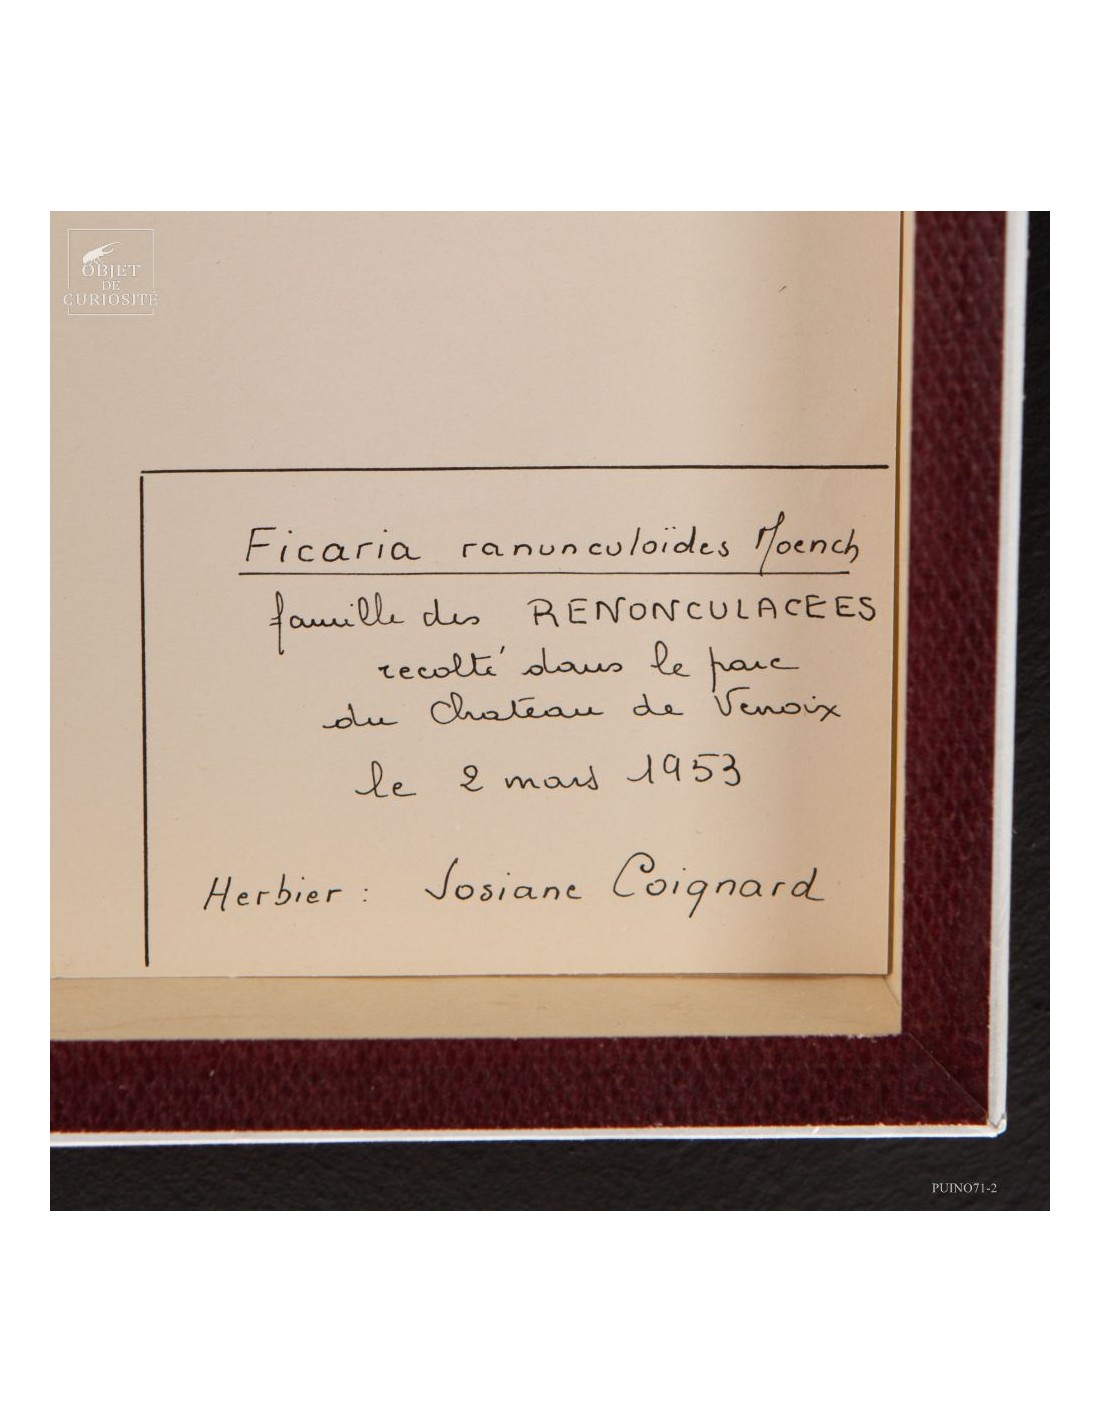 OBJET
DE
CURIOSITÉ
Ficaria ranunculoïdes Moench
famille des RENONCULACEES
recolté dans le parc
du Chateau de Venoix
le 2 mars 1953
Herbier : Josiane Coignard
PUINO71-2